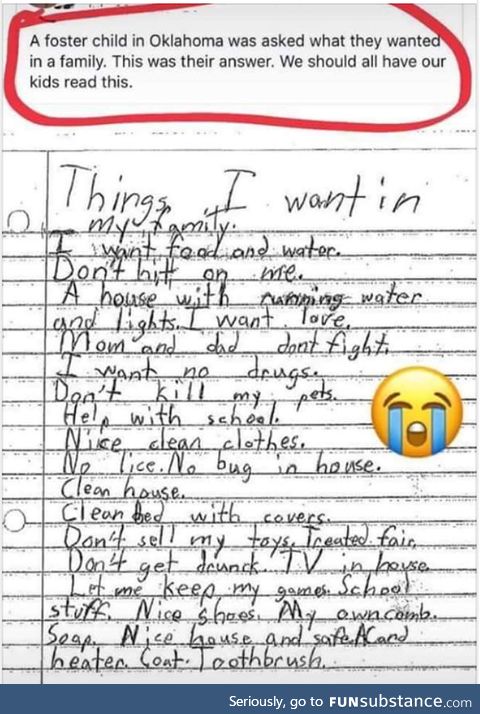 A foster child in Oklahoma was asked what they wanted
in a family. This was their answer. We should all have our
kids read this.
Things I want in
my family.
I want food and water.
Don't hitt on me.
A house with running water
and lights. I want love.
Mom and dad dont fight.
I want no drugs.
Don't kill my pets.
Help with school.
Nice clean clothes.
No lice. No bug in house.
Clean house.
Clean bed with covers.
Don't sell my toys. Treated fair.
Don't get drunck. TV in house
Let me keep my games. School
stuff. Nice shoes. My own comb.
Soap. Nice house and safe. AC and
heater. Coat. Toothbrush.
Seriously, go to FUNsubstance.com